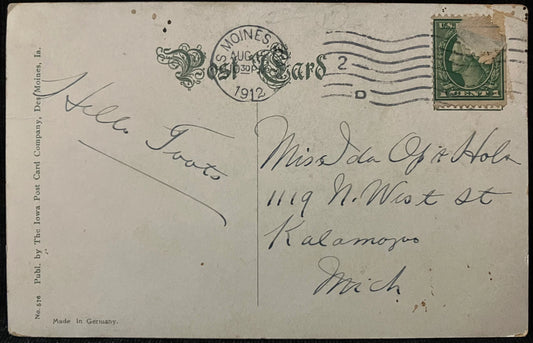 Post Card
DES MOINES
AUG
30P
1912
2
D
U.S.
CENT
Hello Toots
Miss Ida Op't Holn
1119 N. West St
Kalamazoo
Mich
No. 576 Publ. by The Iowa Post Card Company, Des Moines, Ia.
Made in Germany.